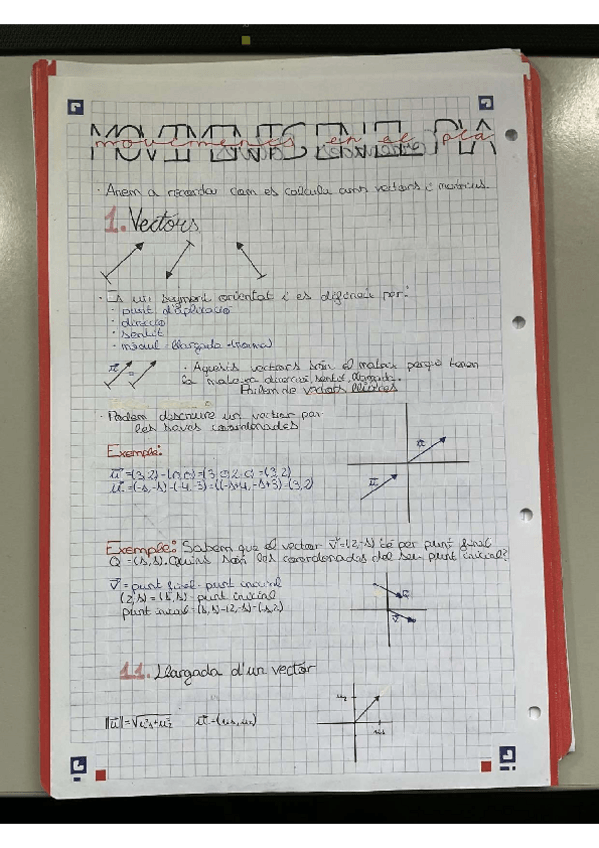 MOVIMENTS EN EL PLA
moviments en el pla
· Anem a recordar com es calcula amb vectors i matrius.
1. Vectors
· És un segment orientat i es defineix per:
· punt d'aplicació
· direcció
· sentit
· mòdul (llargada - norma)
u =
· Aquests vectors són el mateix perquè tenen
la mateixa direcció, sentit, llargada.
Parlem de vectors lliures
· Podem descriure un vector per
les seves coordenades
u
u
Exemple:
u = (3,2) - (0,0) = (3-0, 2-0) = (3,2)
u = (-1,-1) - (-4,-3) = (-1+4, -1+3) = (3,2)
Exemple: Sabem que el vector v = (2,-1) té per punt final
Q = (1,1). Quins són les coordenades del seu punt inicial?
v = punt final - punt inicial
(2,-1) = (1,1) - punt inicial
punt inicial = (1,1) - (2,-1) = (-1,2)
v
1.1. Llargada d'un vector
u₂
u₁
||u|| = √u²₁+u²₂ u = (u₁,u₂)